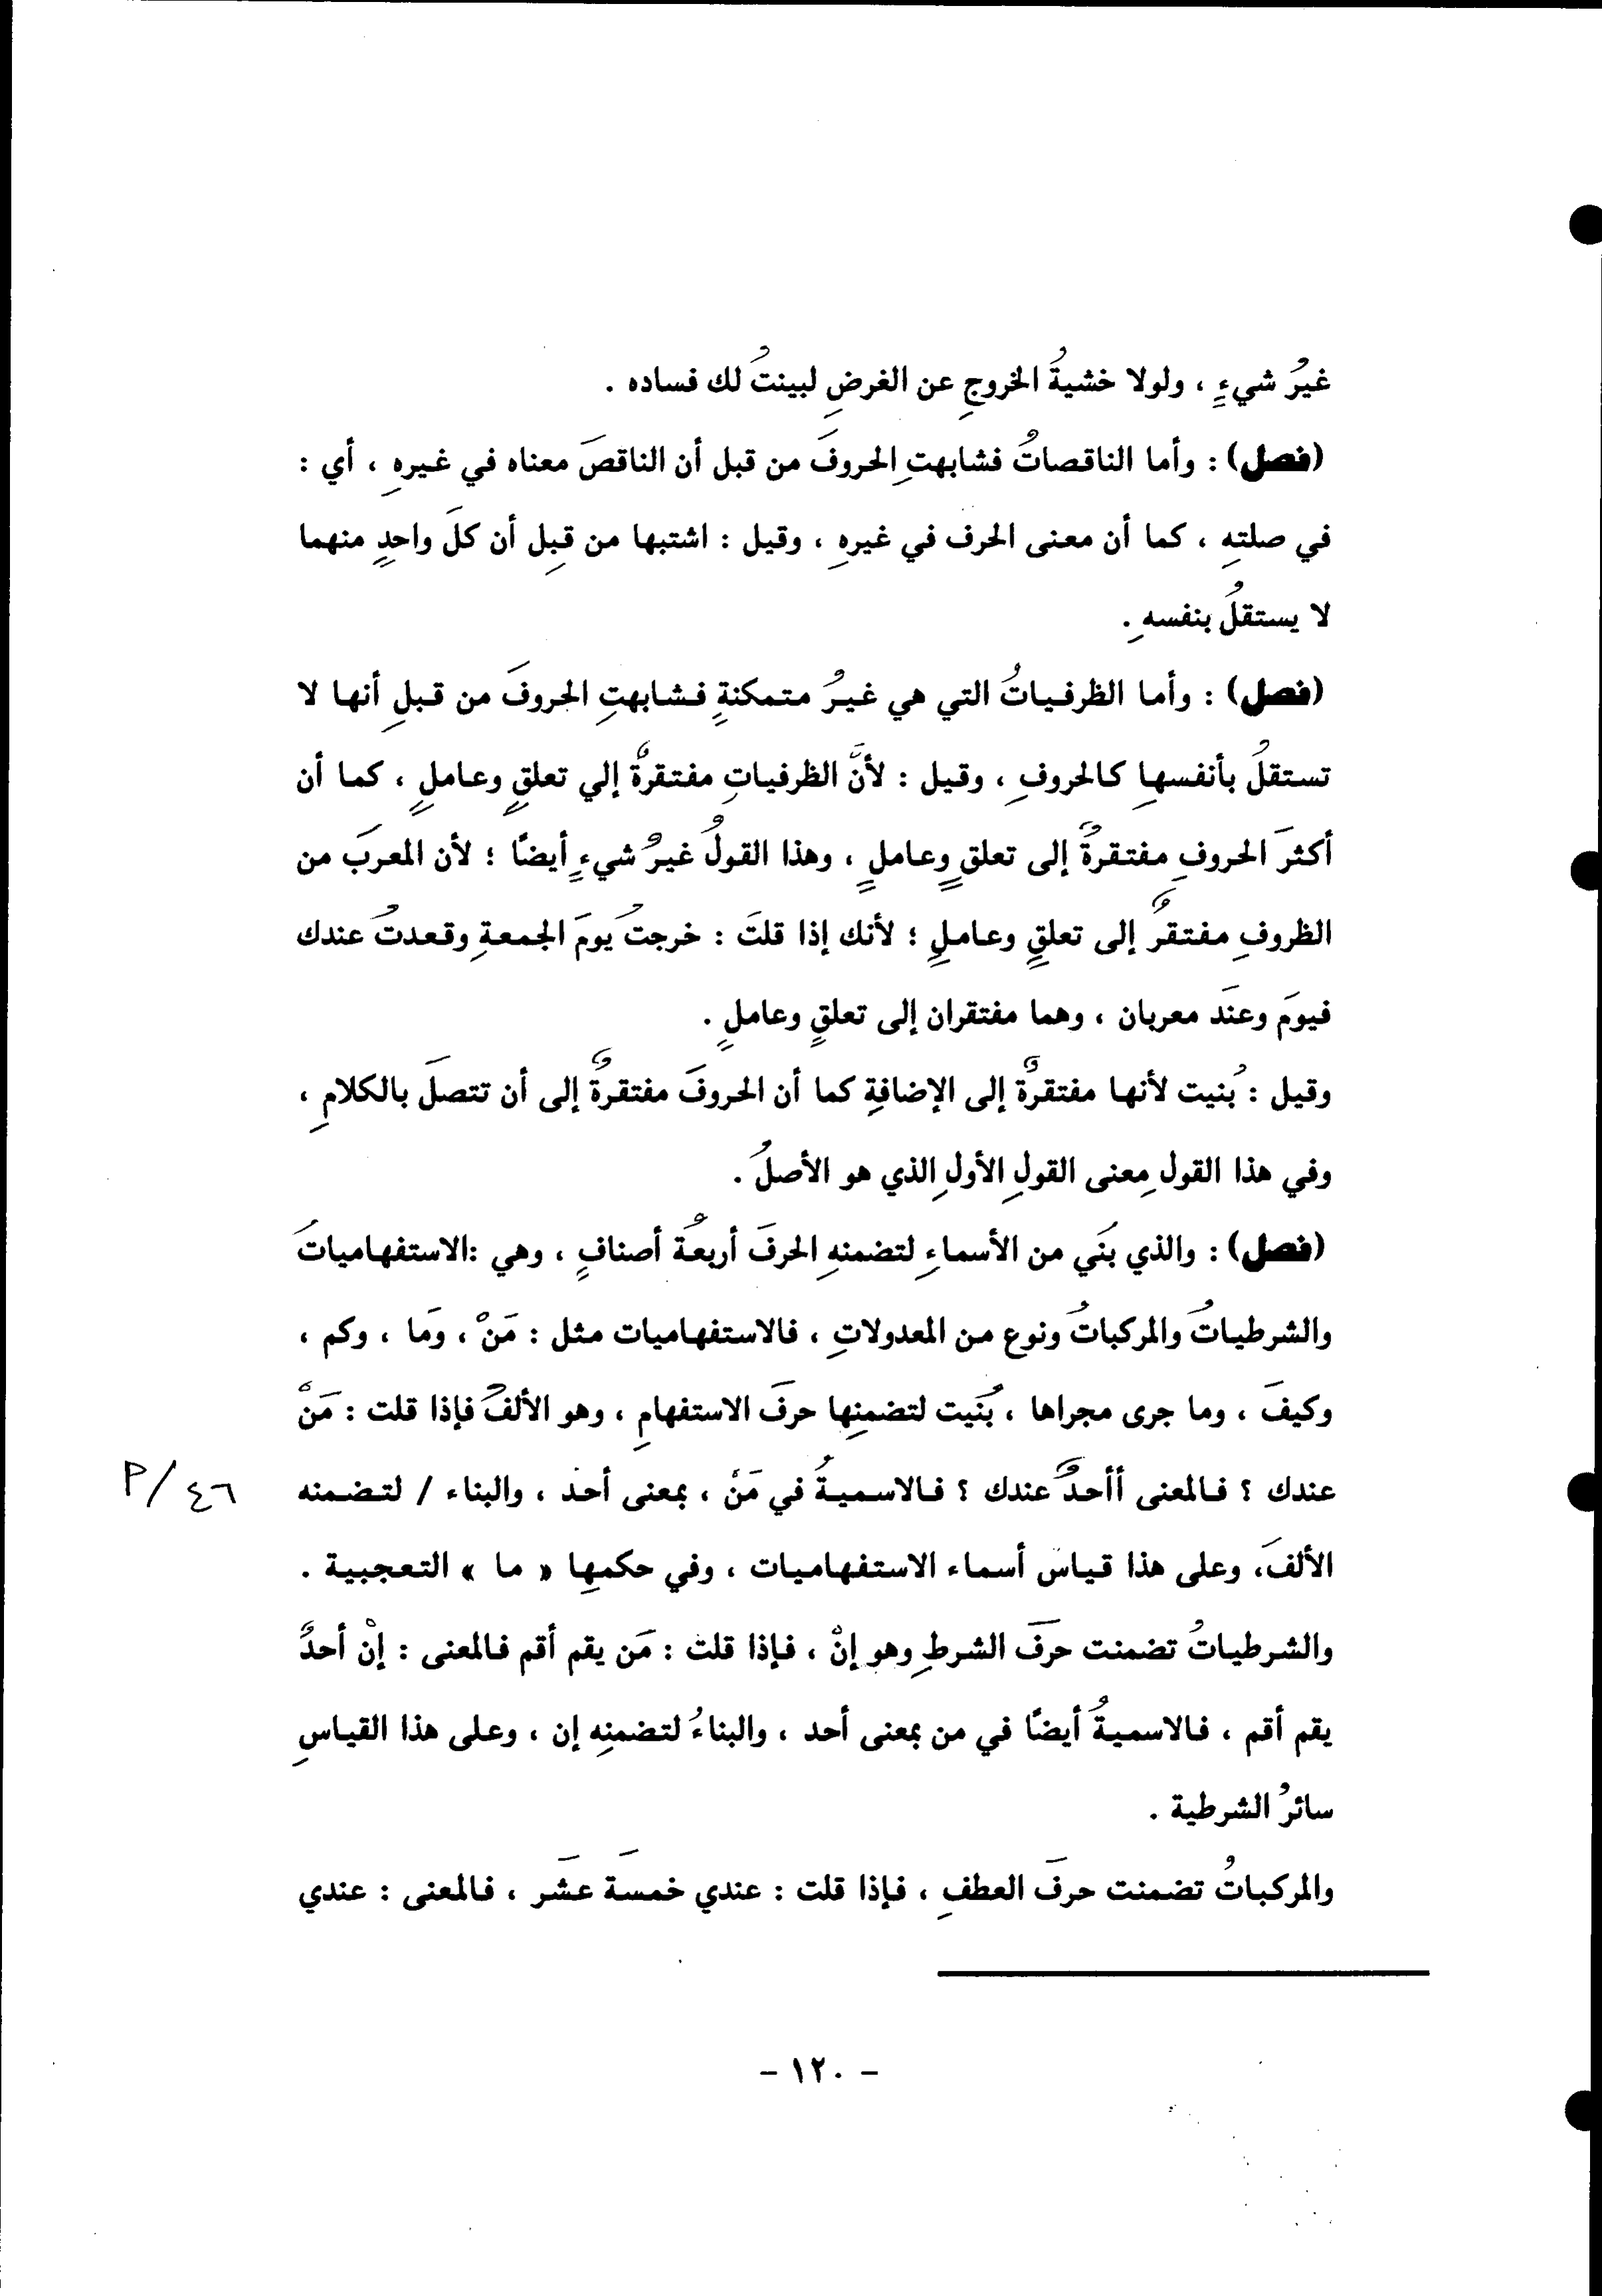 غيرُ شيءٍ ، ولولا خشيةُ الخروجِ عن الغرضِ لبينتُ لك فساده .
(فصل) : وأما الناقصاتُ فشابهتِ الحروفَ من قبل أن الناقصَ معناه في غيرهِ ، أي :
في صلتهِ ، كما أن معنى الحرف في غيرهِ ، وقيل : اشتبها من قبِل أن كلَ واحدٍ منهما
لا يستقلُ بنفسهِ .
(فصل) : وأما الظرفياتُ التي هي غيرُ متمكنةٍ فشابهتِ الحروفَ من قبلِ أنها لا
تستقلُ بأنفسهِا كالحروفِ ، وقيل : لأنَّ الظرفياتِ مفتقرةٌ إلي تعلقٍ وعاملٍ ، كما أن
أكثرَ الحروفِ مفتقرةٌ إلى تعلقٍ وعاملٍ ، وهذا القولُ غيرُ شيءٍ أيضًا ؛ لأن المعربَ من
الظروفِ مفتقرٌ إلى تعلقٍ وعاملٍ ؛ لأنك إذا قلتَ : خرجتُ يومَ الجمعةِ وقعدتُ عندك
فيومَ وعندَ معربان ، وهما مفتقران إلى تعلقٍ وعاملٍ .
وقيل : بُنيت لأنها مفتقرةٌ إلى الإضافةِ كما أن الحروفَ مفتقرةٌ إلى أن تتصلَ بالكلامِ ،
وفي هذا القولِ معنى القولِ الأولِ الذي هو الأصلُ .
(فصل) : والذي بنَي من الأسماءِ لتضمنهِ الحرفَ أربعةُ أصنافٍ ، وهي :الاستفهامياتُ
والشرطياتُ والمركباتُ ونوع من المعدولاتِ ، فالاستفهاميات مثل : مَنْ ، ومَا ، وكم ،
وكيفَ ، وما جرى مجراها ، بُنَيت لتضمنِها حرفَ الاستفهامِ ، وهو الألفُ فإذا قلت : مَنْ
عندك ؟ فالمعنى أأحدٌ عندك ؟ فالاسميةُ في مَنْ ، بمعنى أحد ، والبناء / لتضمنه
٤٦/م
الألفَ، وعلى هذا قياس أسماء الاستفهاميات ، وفي حكمهِا « ما » التعجبية .
والشرطياتُ تضمنت حرفَ الشرطِ وهو إنْ ، فإذا قلت : مَن يقم أقم فالمعنى : إنْ أحدٌ
يقم أقم ، فالاسميةُ أيضًا في من بمعنى أحد ، والبناءُ لتضمنهِ إن ، وعلى هذا القياسِ
سائرُ الشرطية .
والمركباتُ تضمنت حرفَ العطفِ ، فإذا قلت : عندي خمسَة عشَر ، فالمعنى : عندي
- ١٢٠ -